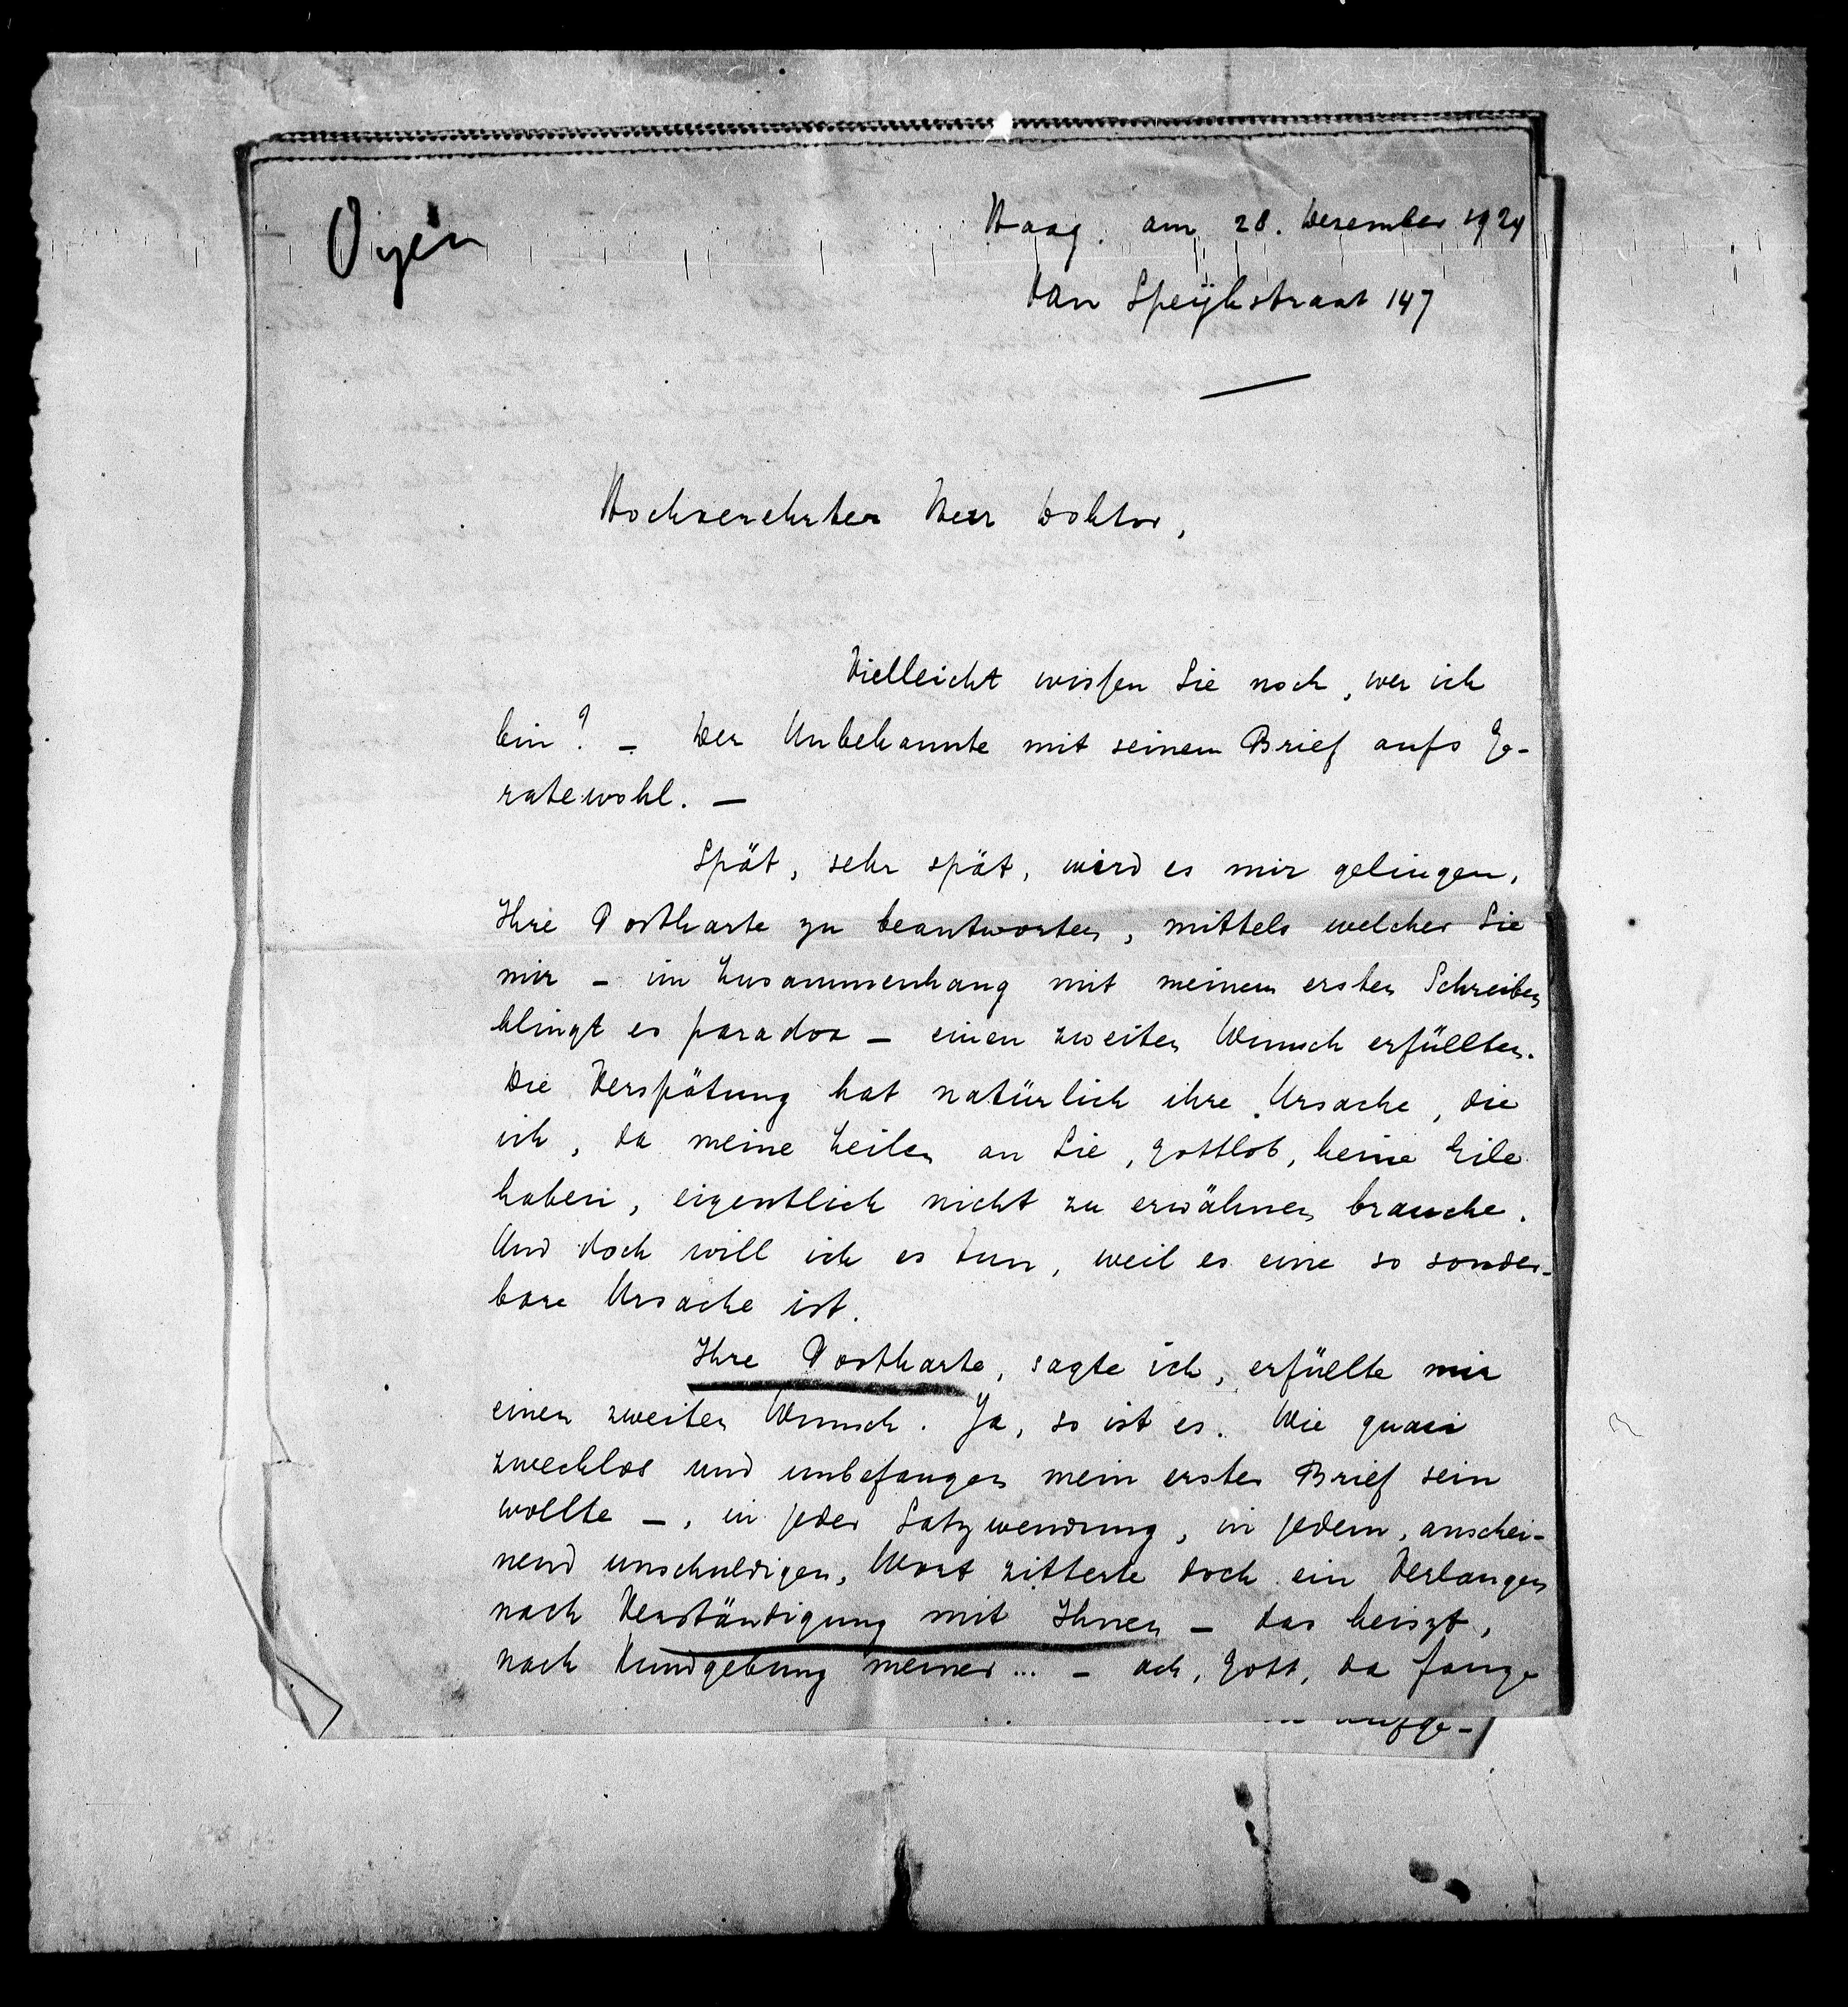 Haag. am 28. Dezember 1924
Van Speijkstraat 147
Hochverehrter Herr Doktor,
Vielleicht wissen Sie noch, wer ich
bin? – Der Unbekannte mit seinem Brief aufs Ge-
ratewohl. –
Spät, sehr spät, wird es mir gelingen,
Ihre Postkarte zu beantworten, mittels welcher Sie
mir – im Zusammenhang mit meinem ersten Schreiben
klingt es paradox – einen zweiten Wunsch erfüllten.
Die Verspätung hat natürlich ihre Ursache, die
ich, da meine Zeilen an Sie, gottlob, keine Eile
haben, eigentlich nicht zu erwähnen brauche.
Und doch will ich es tun, weil es eine so sonder-
bare Ursache ist.
Ihre Postkarte, sagte ich, erfüllte mir
einen zweiten Wunsch. Ja, so ist es. Wie quasi
zwecklos und unbefangen mein erster Brief sein
wollte –, in jeder Satzwendung, in jedem, anschei-
nend unschuldigen, Wort zitterte doch ein Verlangen
nach Verständigung mit Ihnen – das heiszt,
nach Kundgebung meiner... – ach, Gott, da fange
aufge-